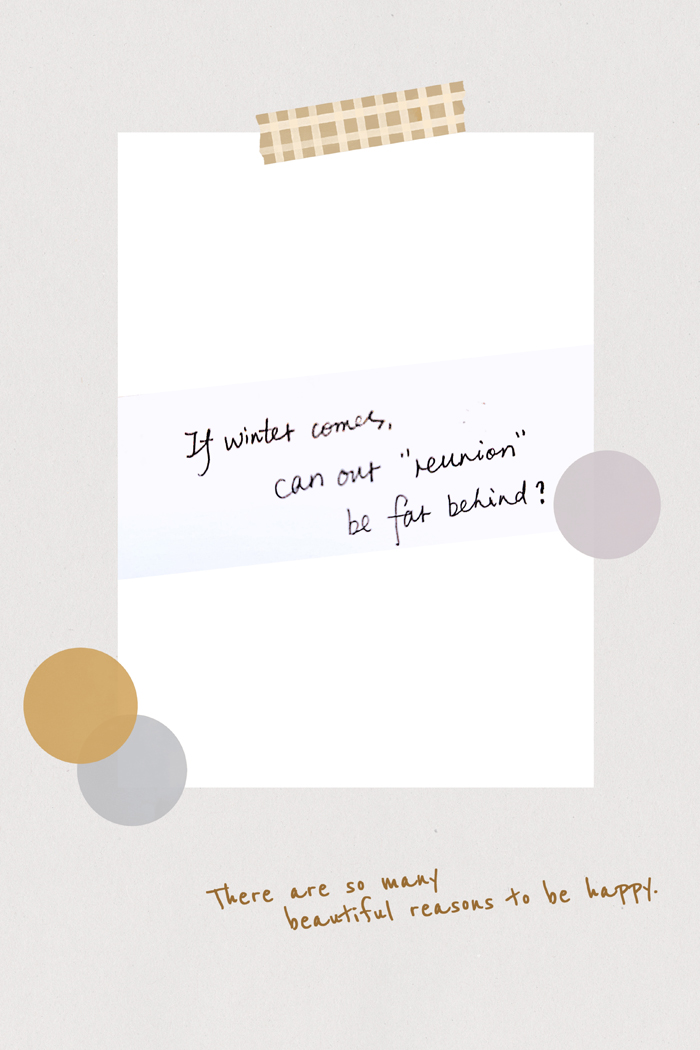 If winter comes,
can our "reunion"
be far behind?
There are so many
beautiful reasons to be happy.